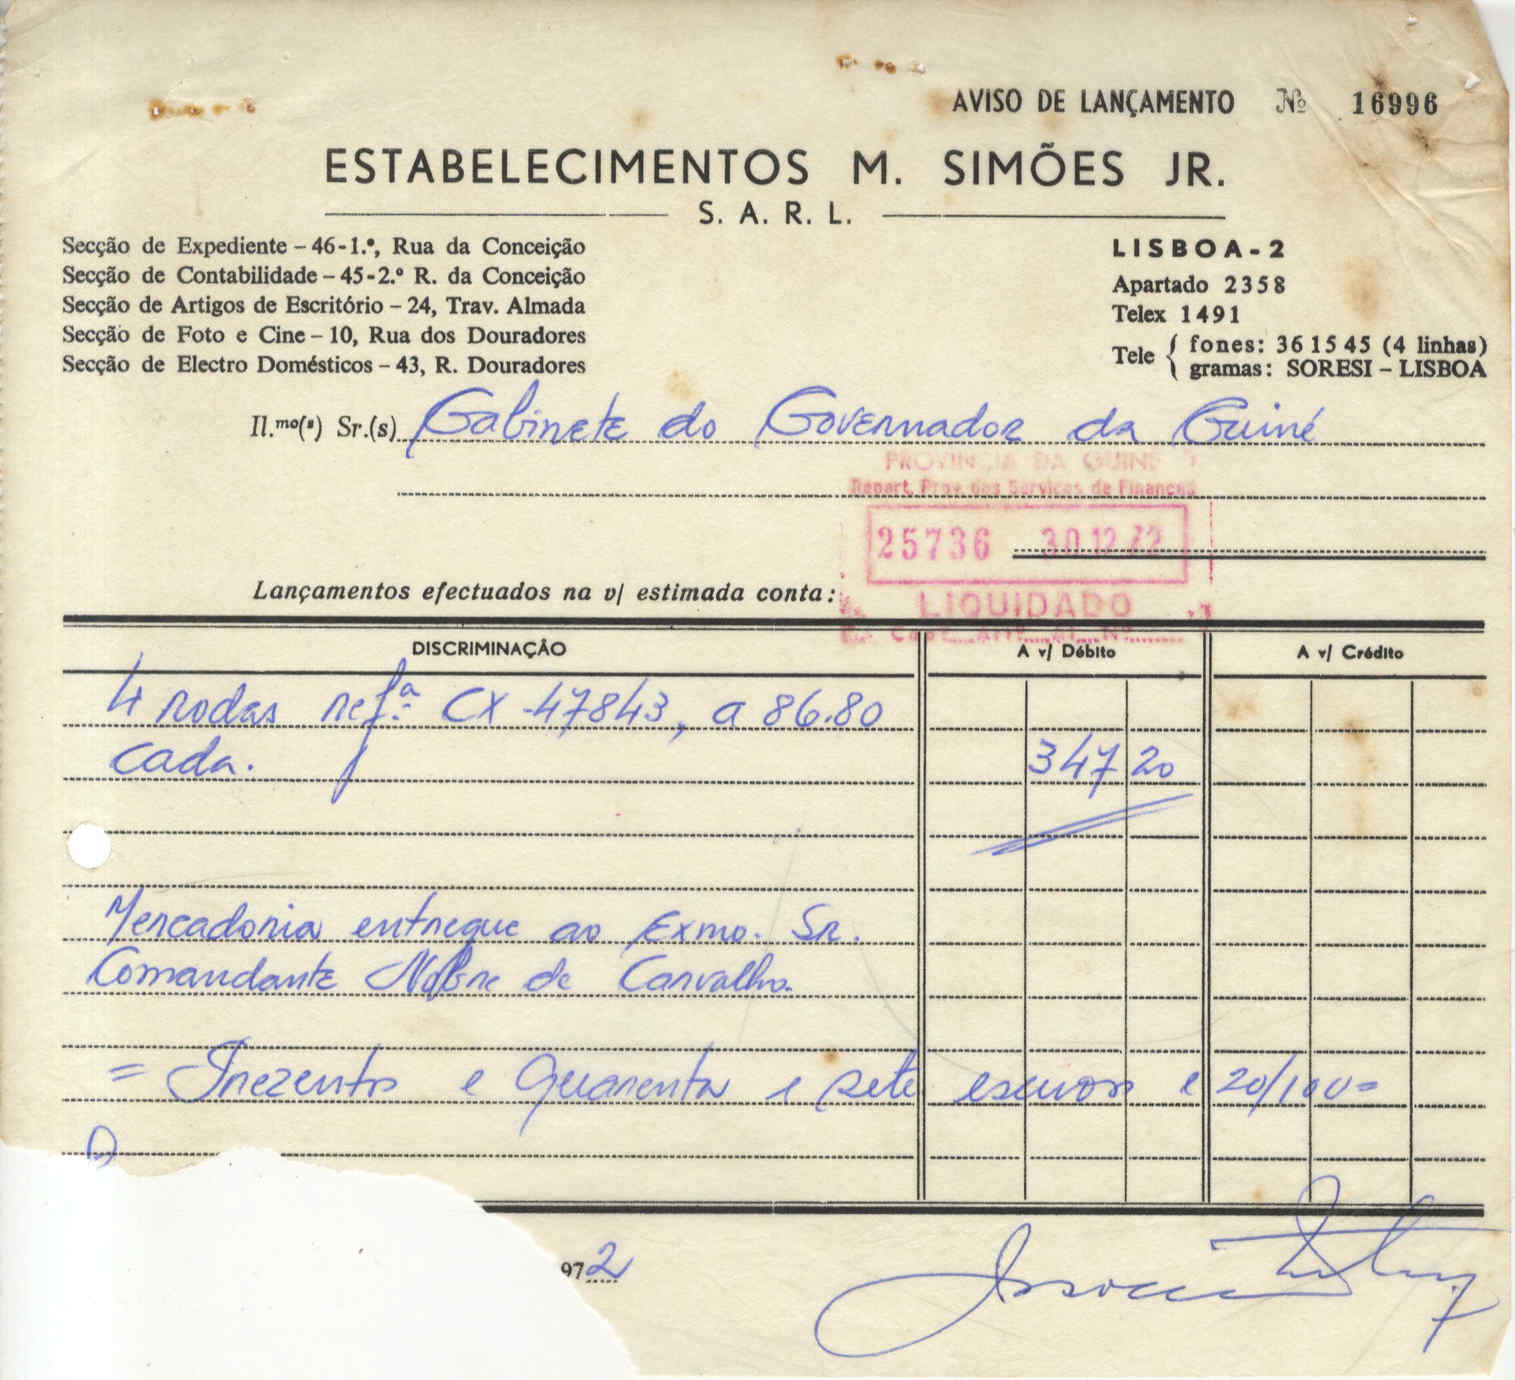 AVISO DE LANÇAMENTO Nº 16996
ESTABELECIMENTOS M. SIMÕES JR.
S. A. R. L.
Secção de Expediente – 46-1.º, Rua da Conceição
Secção de Contabilidade – 45-2.º R. da Conceição
Secção de Artigos de Escritório – 24, Trav. Almada
Secção de Foto e Cine – 10, Rua dos Douradores
Secção de Electro Domésticos – 43, R. Douradores
LISBOA-2
Apartado 2358
Telex 1491
Tele { fones: 361545 (4 linhas)
gramas: SORESI – LISBOA
Il.mo(s) Sr.(s) Gabinete do Governador da Guiné
PROVINCIA DA GUINÉ
Repart. Prov. dos Serviços de Finanças
25736 30.12.72
LIQUIDADO
Lançamentos efectuados na v/ estimada conta:
DISCRIMINAÇÃO A v/ Débito A v/ Crédito
4 rodas refª. CX-47843, a 86.80
cada. 347 20
Mercadoria entregue ao Exmo. Sr.
Comandante Nobre de Carvalho.
= Trezentos e quarenta e sete escudos e 20/100=
972